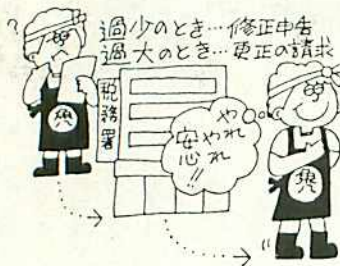 ?
過少のとき…修正申告
過大のとき…更正の請求
税務署
やれ
やれ
安心
!!